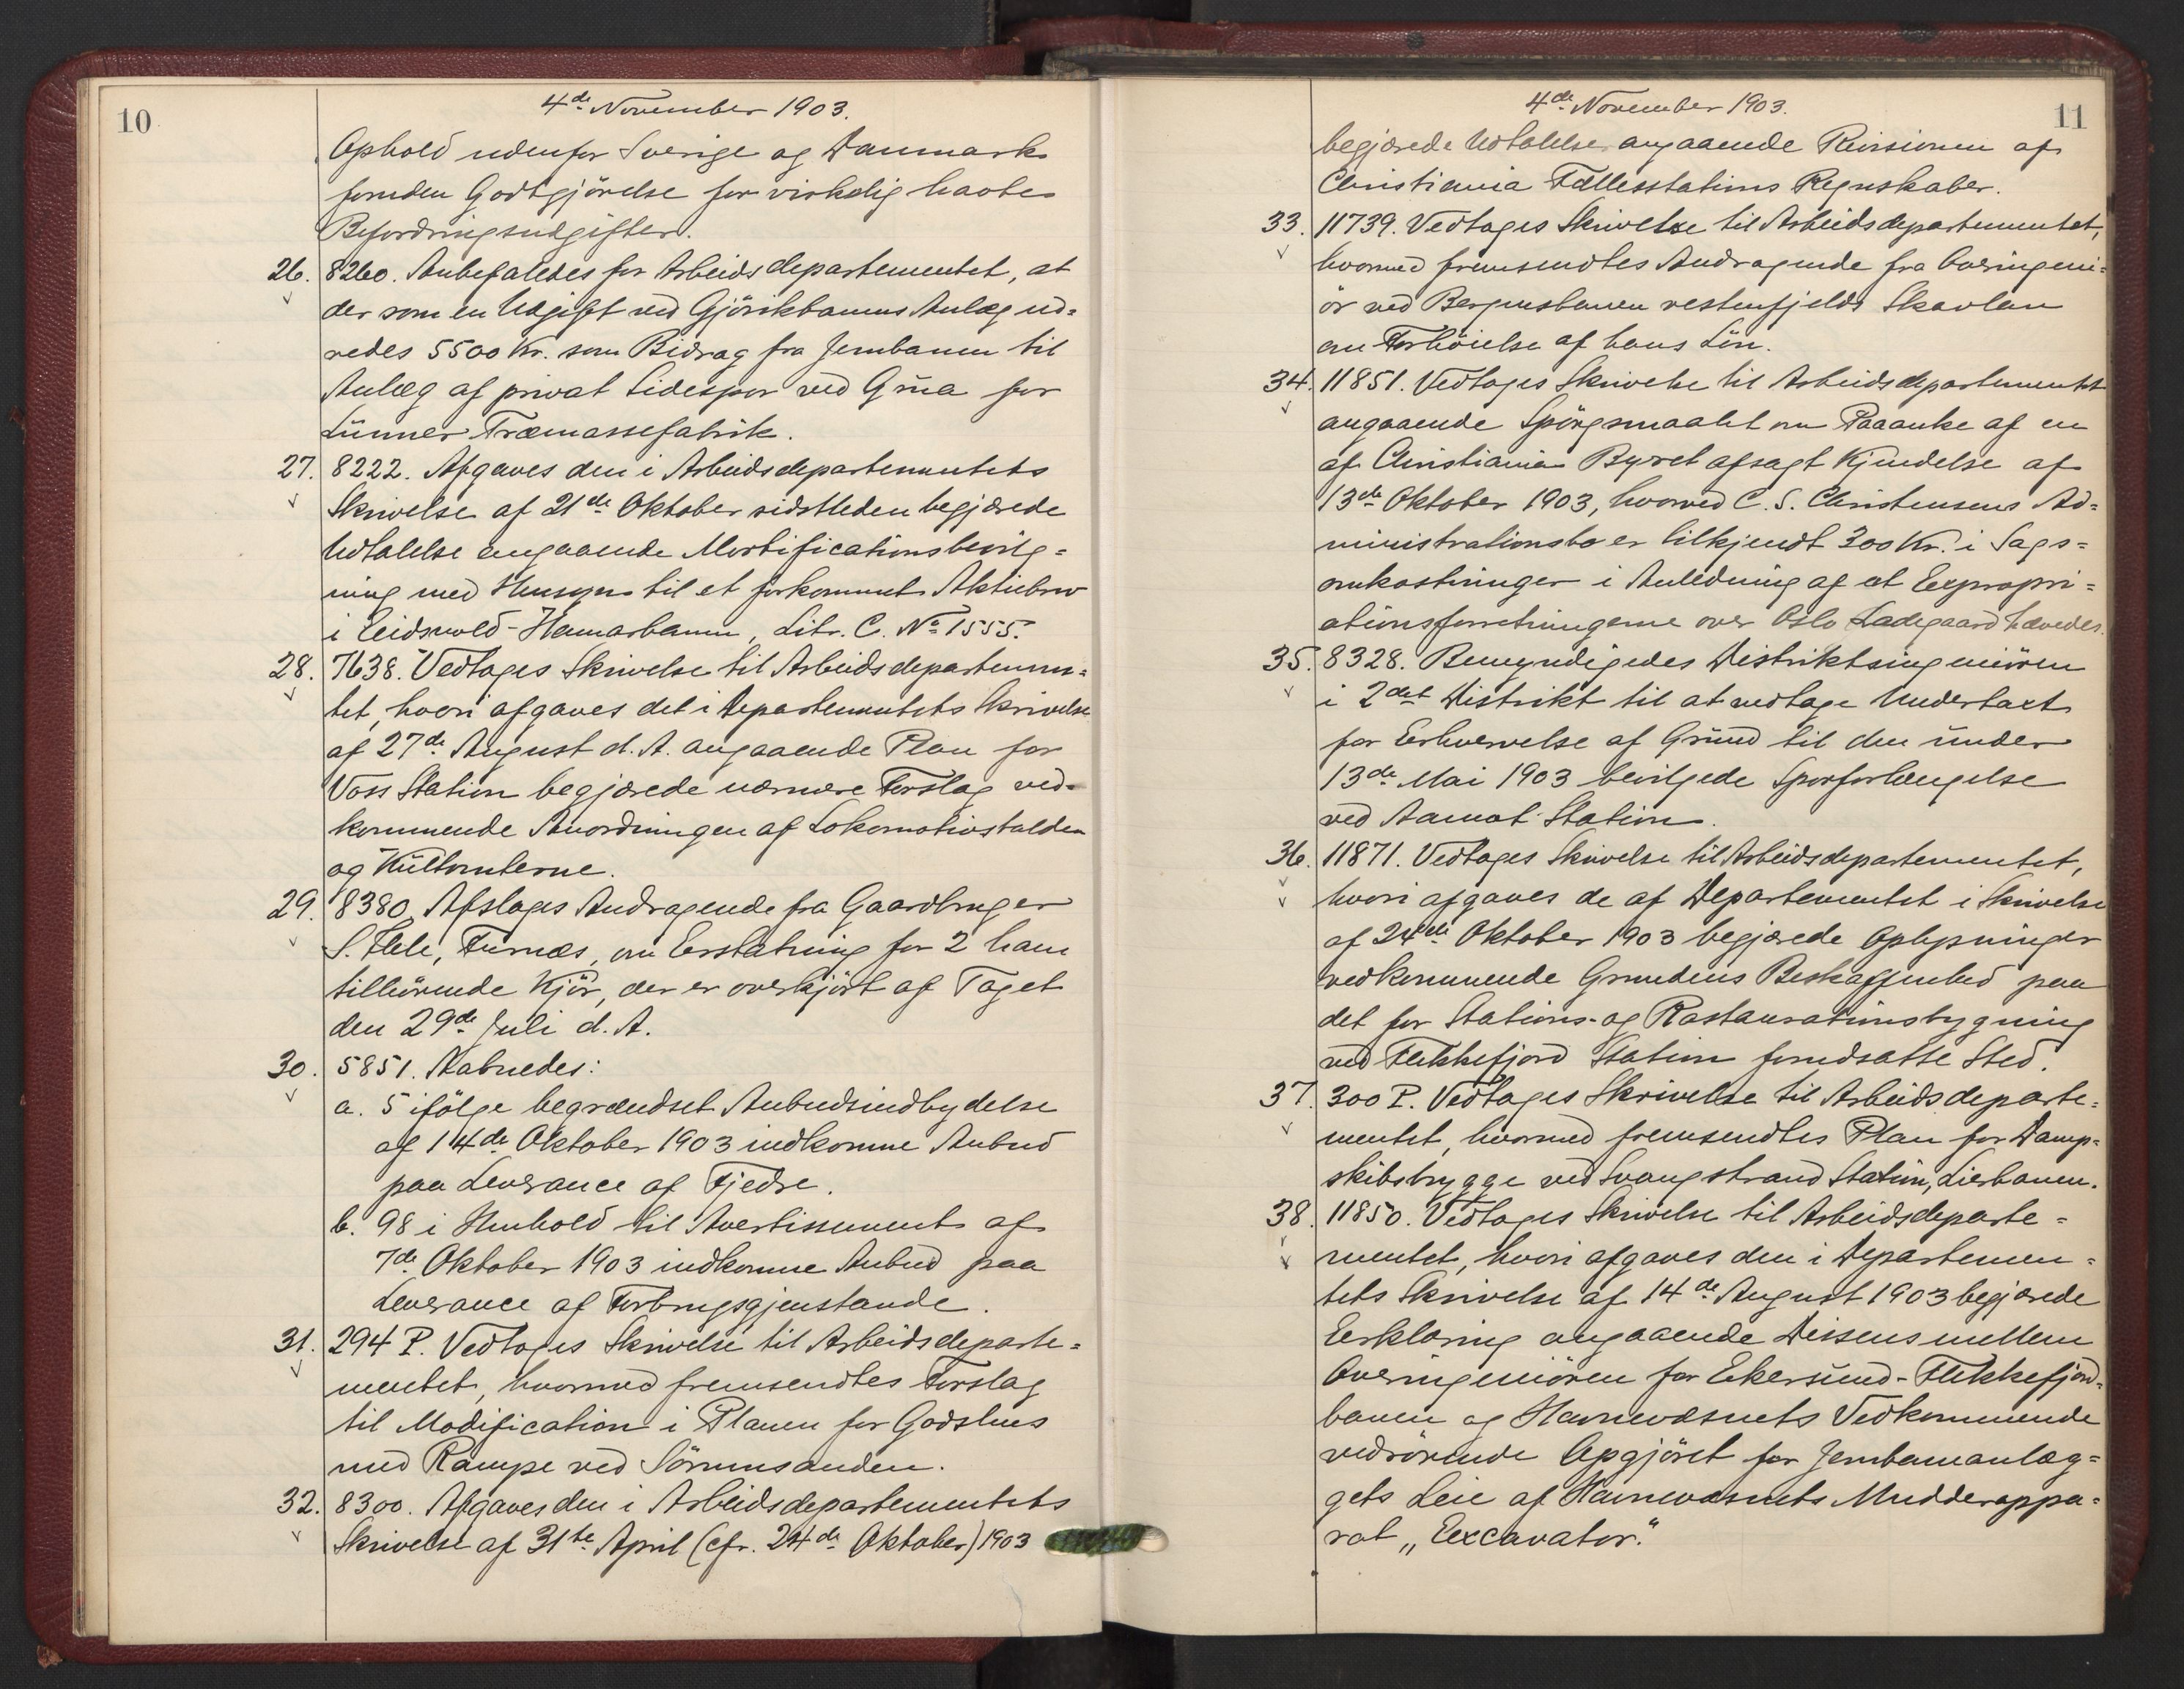 10
4de November 1903.
Ophold udenfor Sverige og Danmark
foruden Godtgjörelse for virkelig havte
Befordringsudgifter.
26. 8260. Anbefaledes for Arbeidsdepartementet, at
der som en Udgift ved Gjövikbanens Anlæg ud=
redes 5500 Kr. som Bidrag fra Jernbanen til
Anlæg af privat Sidespor ved Grua for
Lunner Træmassefabrik.
27. 8222. Afgaves den i Arbeidsdepartementets
Skrivelse af 21de Oktober sidstleden begjærede
Udtalelse angaaende Mortificationsbevilg=
ning med Hensyn til et forkommet Aktiebrev
i Eidsvold-Hamarbanen, Litr. C. No 1555.
28. 7638. Vedtages Skrivelse til Arbeidsdepartemen=
tet, hvori afgaves det i Departementets Skrivelse
af 27de August d. A. angaaende Plan for
Voss Station begjærede nærmere Forslag ved=
kommende Anordningen af Lokomotivstalden
og Kultomterne.
29. 8380. Afslages Andragende fra Gaardbruger
S. Hele, Furnæs, om Erstatning for 2 ham
tilhörende Kjör, der er overkjört af Toget
den 29de Juli d. A.
30. 5851. Aabnedes:
a. 5 ifölge begrændset Anbudsindbydelse
af 14de Oktober 1903 indkomne Anbud
paa Leverance af Fjedre.
b. 98 i Henhold til Avertissement af
7de Oktober 1903 indkomne Anbud paa
Leverance af Forbrugsgjenstande.
31. 294 P. Vedtages Skrivelse til Arbeidsdeparte=
mentet, hvormed fremsendtes Forslag
til Modification i Planen for Godshus
med Rampe ved Sörumsanden.
32. 8300. Afgaves den i Arbeidsdepartementets
Skrivelse af 31te April (cfr. 24de Oktober) 1903
11
4de November 1903.
begjærede Udtalelse angaaende Revisionen af
Christiania Fællesstations Regnskaber.
33. 11739. Vedtages Skrivelse til Arbeidsdepartementet,
hvormed fremsendtes Andragende fra Overingeni=
ör ved Bergensbanen vestenfjelds Skavlan
om Forhöielse af hans Lön.
34. 11851. Vedtages Skrivelse til Arbeidsdepartementet
angaaende Spörgsmaalet om Paaanke af en
af Christiania Byret afsagt Kjendelse af
13de Oktober 1903, hvorved C. S. Christensens Ad=
ministrationsbo er tilkjendt 300 Kr. i Sags=
omkostninger i Anledning af at Expropri=
ationsforretningerne over Oslo Ladegaard hævedes.
35. 8328. Bemyndigedes Distriktsingeniören
i 2det Distrikt til at vedtage Undertaxt
for Erhvervelse af Grund til den under
13de Mai 1903 bevilgede Sporforlængelse
ved Aamot Station.
36. 11871. Vedtages Skrivelse til Arbeidsdepartementet,
hvori afgaves de af Departementet i Skrivelse
af 24de Oktober 1903 begjærede Oplysninger
vedkommende Grundens Beskaffenhed paa
det for Stations- og Rastaurationsbygning
ved Flekkefjord Station forudsatte Sted.
37. 300 P. Vedtages Skrivelse til Arbeidsdeparte=
mentet, hvormed fremsendtes Plan for Damp=
skibsbrygge ved Svangstrand Station, Lierbanen.
38. 11850. Vedtages Skrivelse til Arbeidsdeparte=
mentet, hvori afgaves den i Departemen=
tets Skrivelse af 14de August 1903 begjærede
Erklæring angaaende Dissens mellem
Overingeniören for Ekersund-Flekkefjord=
banen og Havnevæsnets Vedkommende
vedrörende Opgjöret for Jernbaneanlæg=
gets Leie af Havnevæsnets Mudderappa=
rat „Excavator".